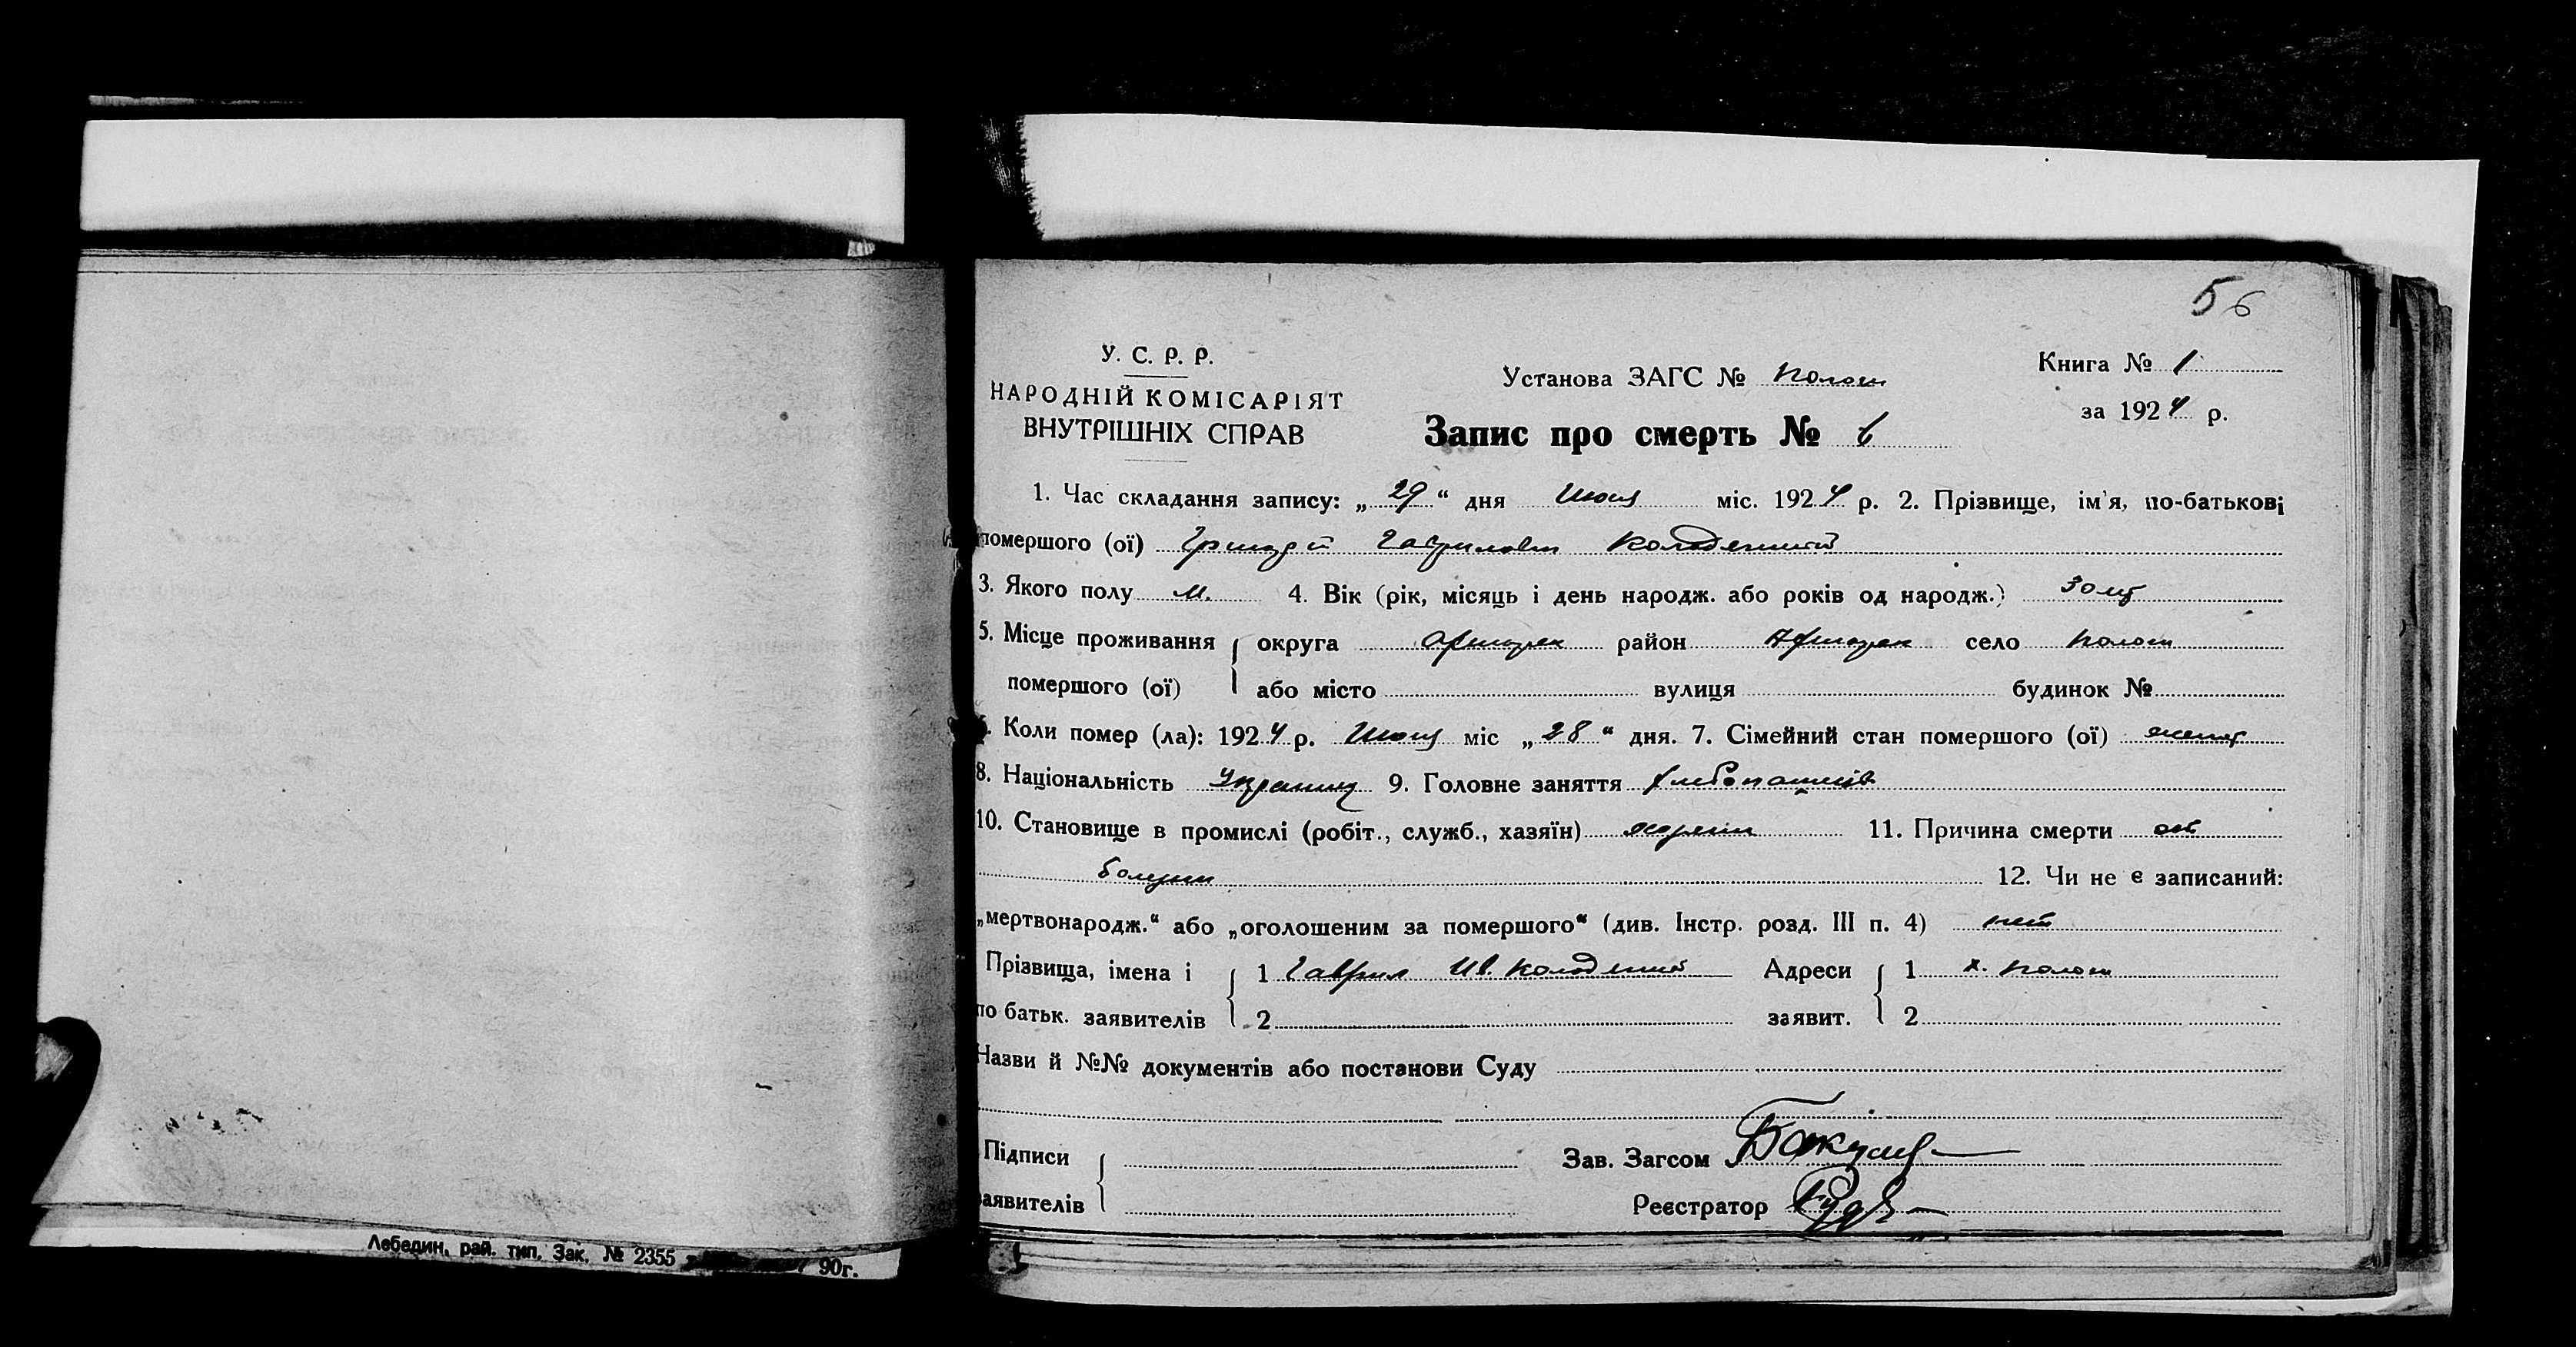 56
У. С. Р. Р.
НАРОДНІЙ КОМІСАРІЯТ
ВНУТРІШНІХ СПРАВ
Установа ЗАГС №
Книга № 1
за 1924 р.
Запис про смерть № 6
1. Час складання запису: „29“ дня Июня міс. 1924 р. 2. Прізвище, ім'я, по-батькові
помершого (ої) Григорій Гаврилович
3. Якого полу м. 4. Вік (рік, місяць і день народж. або років од народж.)
5. Місце проживання округа район село
помершого (ої) або місто вулиця будинок №
6. Коли помер (ла): 1924 р. Июня міс „28“ дня. 7. Сімейний стан помершого (ої) женат
8. Національність Украинец 9. Головне заняття
10. Становище в промислі (робіт., служб., хазяїн) 11. Причина смерти от
12. Чи не є записаний:
„мертвонародж.“ або „оголошеним за помершого“ (див. Інстр. розд. III п. 4) нет
Прізвища, імена і 1 Гаврил Ив. Адреси 1 х.
по батьк. заявителів 2 заявит. 2
Назви й №№ документів або постанови Суду
Підписи
заявителів
Зав. Загсом
Реєстратор
Лебедин, рай. тип. Зак. № 2355 90г.